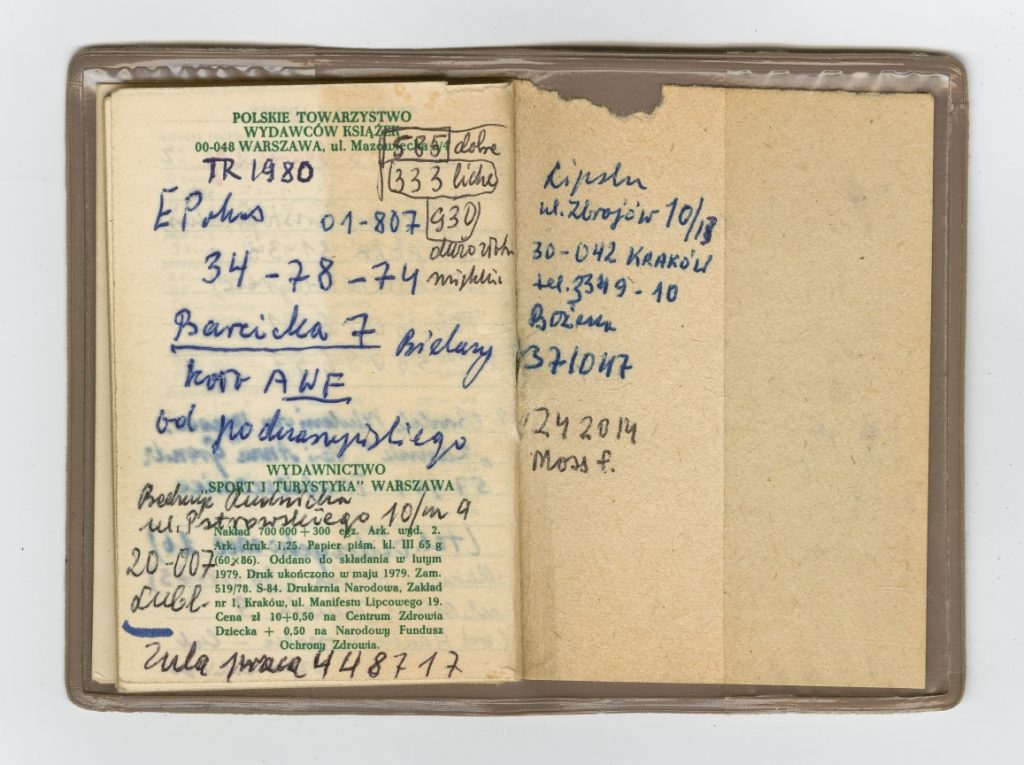 POLSKIE TOWARZYSTWO
WYDAWCÓW KSIĄŻEK
00-048 WARSZAWA, ul. Mazowiecka
585 dobre
333 liche
930
TR 1980
E Pokus 01-807
34-78-74
miękkie
Barcicka 7 Bielany
koło AWF
od podczaszyńskiego
WYDAWNICTWO
„SPORT I TURYSTYKA" WARSZAWA
Rudnicka
ul. Pstrowskiego 10/m 9
20-007
Lubl.
Nakład 700 000+300 egz. Ark. wyd. 2.
Ark. druk. 1,25. Papier piśm. kl. III 65 g
(60×86). Oddano do składania w lutym
1979. Druk ukończono w maju 1979. Zam.
519/78. S-84. Drukarnia Narodowa, Zakład
nr 1, Kraków, ul. Manifestu Lipcowego 19.
Cena zł 10+0,50 na Centrum Zdrowia
Dziecka + 0,50 na Narodowy Fundusz
Ochrony Zdrowia.
Zula praca 448717
Lipska
ul. Zbrojów 10/
30-042 KRAKÓW
tel. 3349-10
Bożena
371047
242014
Moss f.